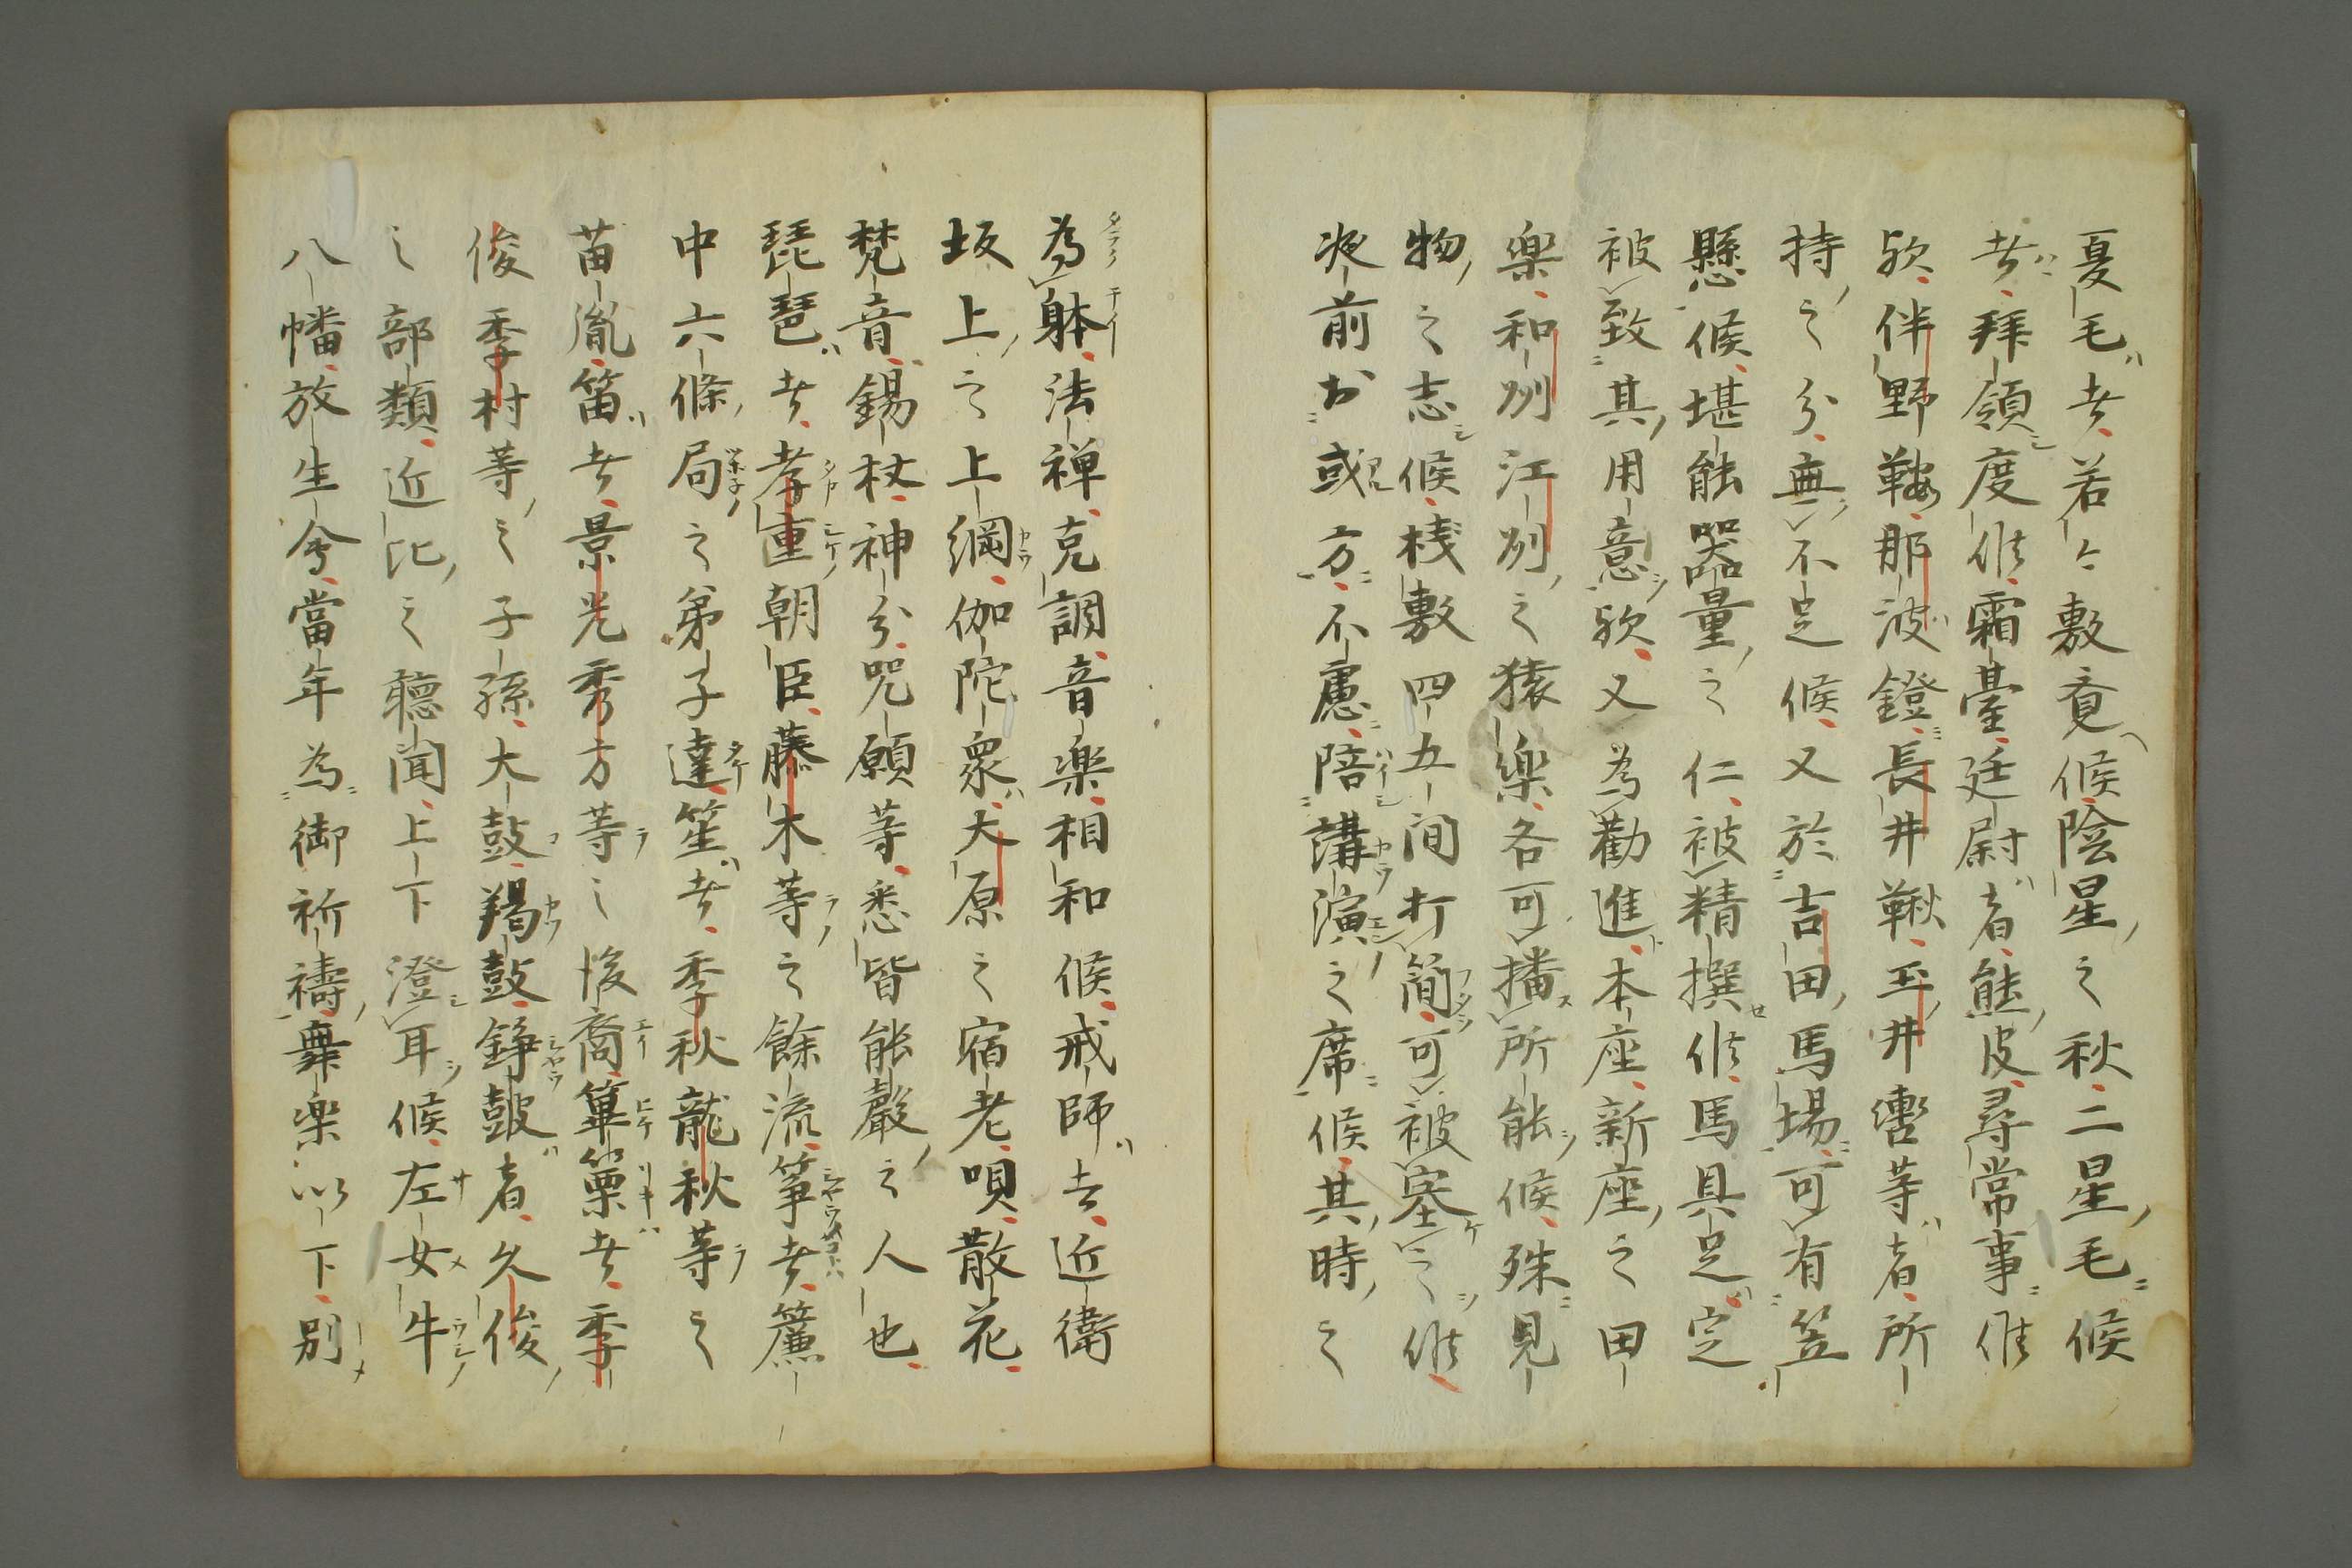 夏毛者若々敷覚候陰星之秋二星毛候
者拝領度候霜臺廷尉者熊皮尋常事候
歟伴野鞍那波鐙長井鞦玉井轡等者所
持之分無不足候又於吉田馬場可有笠
懸候堪能器量之仁被精撰候馬具足定
被致其用意歟又為勧進本座新座之田
楽和州江州之猿楽各可播所能候殊見
物之志候棧敷四五間打簡可被塞之候
次前於或方不慮陪講演之席候其時之
為躰法禅克調音楽相和候戒師者近衛
坂上之上綱伽陀衆大原之宿老唄散花
梵音錫杖神分咒願等悉皆能聲之人也
琵琶者孝重朝臣藤木等之餘流箏者簾
中六條局之弟子達笙者季秋龍秋等之
苗胤笛者景光秀方等之後裔篳篥者季
俊季村等之子孫大鼓羯鼓鉦鼓者久俊
之部類近比之聴聞上下澄耳候左女牛
八幡放生會當年為御祈祷舞楽以下別